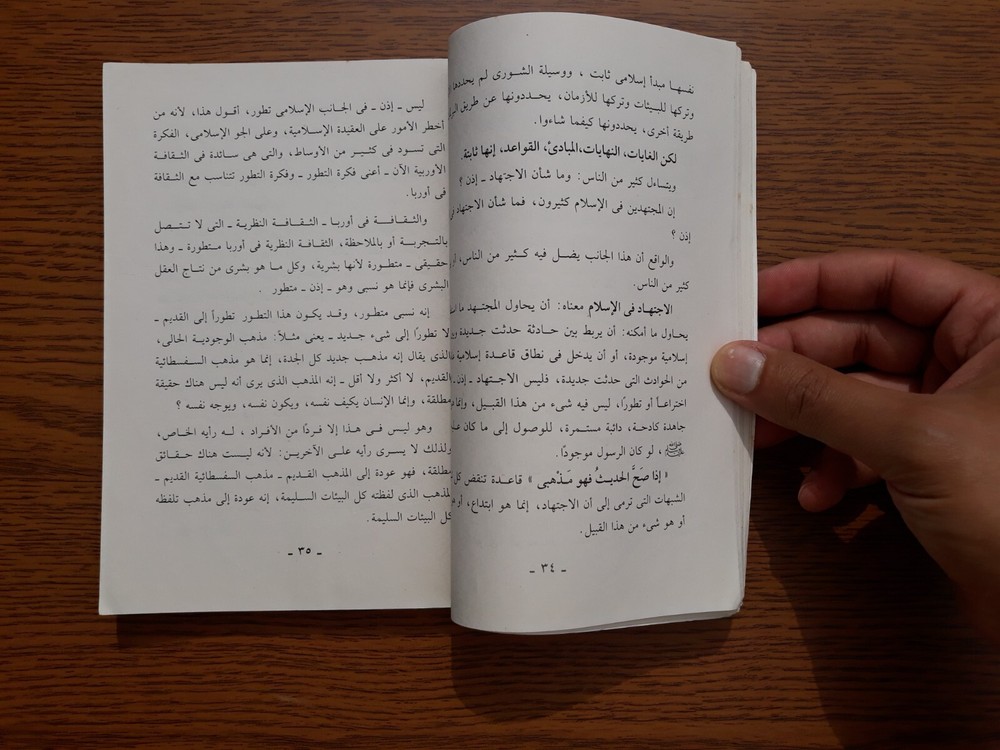 نفسها مبدأ إسلامى ثابت ، ووسيلة الشورى لم يحددها
وتركها للبيئات وتركها للأزمان، يحددونها عن طريق
طريقة أخرى، يحددونها كيفما شاءوا.
لكن الغايات، النهايات،المبادئ، القواعد، إنها ثابتة.
ويتساءل كثير من الناس: وما شأن الاجتهاد ـ إذن ؟
إن المجتهدين فى الإسلام كثيرون، فما شأن الاجتهاد
إذن ؟
والواقع أن هذا الجانب يضل فيه كثير من الناس،
كثير من الناس.
الاجتهاد فى الإسلام معناه: أن يحاول المجتهد ما
يحاول ما أمكنه: أن يربط بين حادثة حدثت جديدة
إسلامية موجودة، أو أن يدخل فى نطاق قاعدة إسلامية
من الحوادث التى حدثت جديدة، فليس الاجتهاد ـ إذن ـ
اختراعاً أو تطورًا، ليس فيه شىء من هذا القبيل، وإنما
جاهدة كادحة، دائبة مستمرة، للوصول إلى ما كان
ﷺ ، لو كان الرسول موجودًا.
« إذا صَحَّ الحديثُ فهو مَذْهبى » قاعدة تنقض كل
الشبهات التى ترمى إلى أن الاجتهاد، إنما هو ابتداع،
أو هو شىء من هذا القبيل.
ـ ٣٤ ـ
ليس ـ إذن ـ فى الجانب الإسلامى تطور، أقول هذا، لأنه من
أخطر الأمور على العقيدة الإسلامية، وعلى الجو الإسلامى، الفكرة
التى تسود فى كثير من الأوساط، والتى هى سائدة فى الثقافة
الأوربية الآن ـ أعنى فكرة التطور ـ وفكرة التطور تتناسب مع الثقافة
فى أوربا.
والثقافة فى أوربا ـ الثقافة النظرية ـ التى لا تتصل
بالتجربة أو بالملاحظة، الثقافة النظرية فى أوربا متطورة ـ وهذا
حقيقى ـ متطورة لأنها بشرية، وكل ما هو بشرى من نتاج العقل
البشرى فإنما هو نسبى وهو ـ إذن ـ متطور .
إنه نسبى متطور، وقد يكون هذا التطور تطوراً إلى القديم ـ
لا تطورًا إلى شىء جديد ـ يعنى مثلاً: مذهب الوجودية الحالى،
الذى يقال إنه مذهب جديد كل الجدة، إنما هو مذهب السفسطائية
القديم، لا أكثر ولا أقل ـ إنه المذهب الذى يرى أنه ليس هناك حقيقة
مطلقة، وإنما الإنسان يكيف نفسه، ويكون نفسه، ويوجه نفسه ؟
وهو ليس فى هذا إلا فردًا من الأفراد ، له رأيه الخاص،
ولذلك لا يسرى رأيه على الآخرين: لأنه ليست هناك حقائق
مطلقة، فهو عودة إلى المذهب القديم ـ مذهب السفسطائية القديم ـ
المذهب الذى لفظته كل البيئات السليمة، إنه عودة إلى مذهب تلفظه
كل البيئات السليمة.
ـ ٣٥ ـ